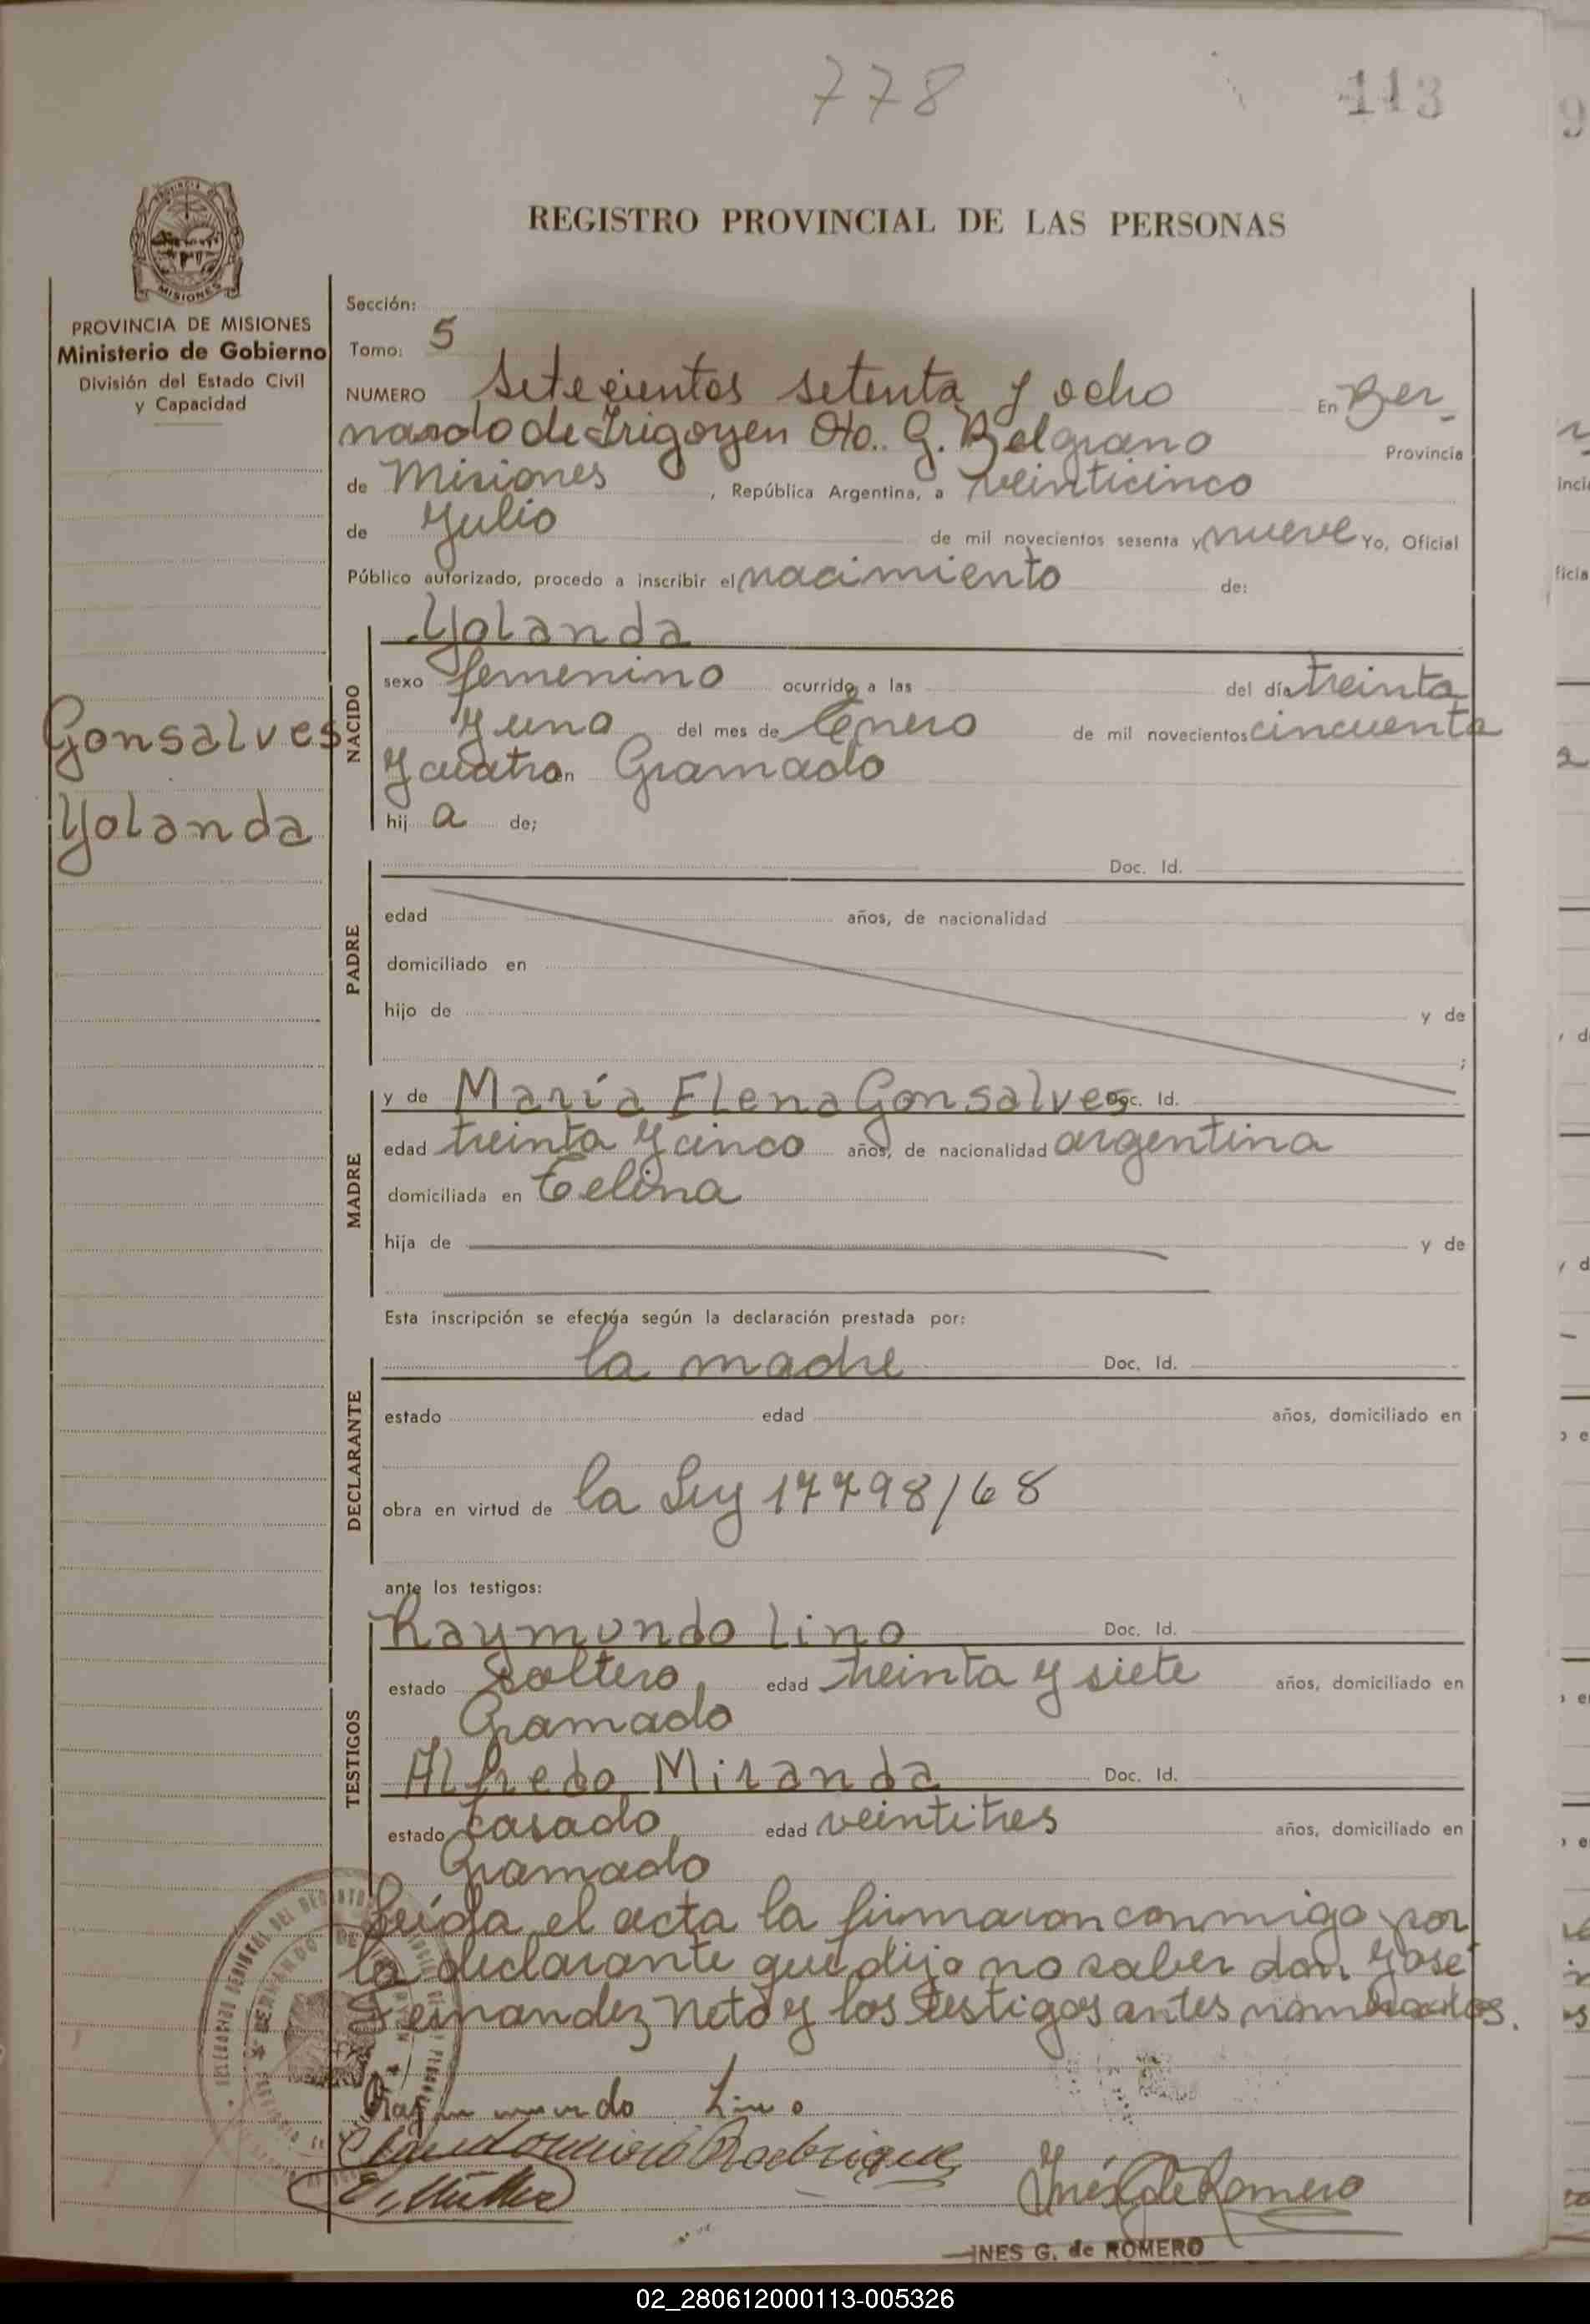 778
113
REGISTRO PROVINCIAL DE LAS PERSONAS
MISIONES
PROVINCIA DE MISIONES
Ministerio de Gobierno
División del Estado Civil
y Capacidad
Gonsalves
Yolanda
Sección:
Tomo: 5
NUMERO Setecientos setenta y ocho En Ber-
nardo de Irigoyen Dto. G. Belgrano Provincia
de Misiones, República Argentina, a veinticinco
de Julio de mil novecientos sesenta y nueve Yo, Oficial
Público autorizado, procedo a inscribir el nacimiento de:
NACIDO
Yolanda
sexo femenino ocurrido a las del día treinta
y uno del mes de Enero de mil novecientos cincuenta
y cuatro en Gramado
hij a de;
PADRE
Doc. Id.
edad años, de nacionalidad
domiciliado en
hijo de y de
;
MADRE
y de María Elena Gonsalves Doc. Id.
edad treinta y cinco años, de nacionalidad argentina
domiciliada en
hija de y de
Esta inscripción se efectúa según la declaración prestada por:
DECLARANTE
la madre Doc. Id.
estado edad años, domiciliado en
obra en virtud de la Ley 17798/68
ante los testigos:
TESTIGOS
Raymundo Lino Doc. Id.
estado Soltero, edad treinta y siete años, domiciliado en
Gramado
Alfredo Miranda Doc. Id.
estado casado, edad veintitres años, domiciliado en
Gramado
Leída el acta la firmaron conmigo por
la declarante que dijo no saber don José
Fernandez Neto y los testigos antes nombrados.
Lino
Inés G de Romero
INES G. de ROMERO
02_280612000113-005326